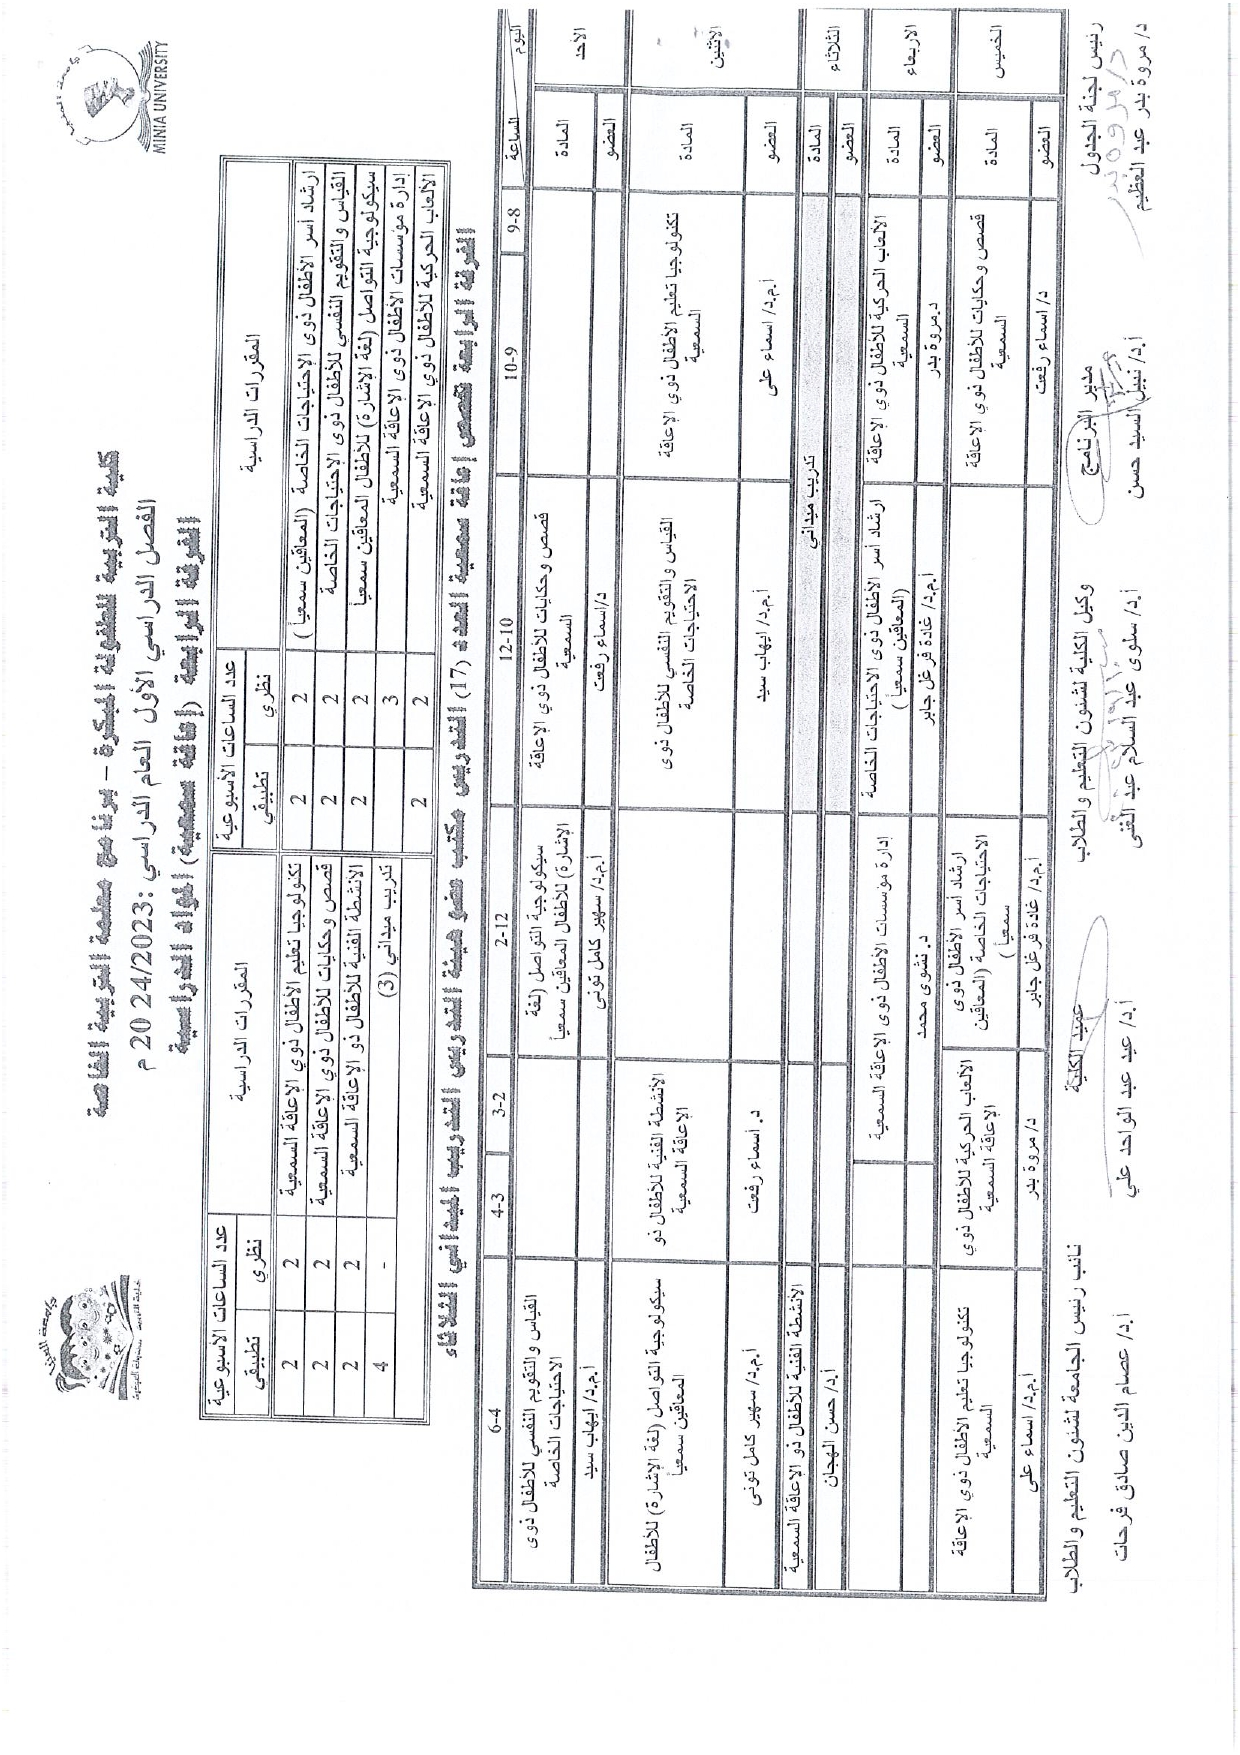 MINIA UNIVERSITY
كلية التربية للطفولة المبكرة – برنامج معلمة التربية الخاصة
الفصل الدراسي الأول العام الدراسي :2024/2023 م
الفرقة الرابعة (إعاقة سمعية) المواد الدراسية
المقررات الدراسية
عدد الساعات الأسبوعية
نظري
تطبيقي
المقررات الدراسية
عدد الساعات الأسبوعية
نظري
تطبيقي
ارشاد أسر الأطفال ذوى الإحتياجات الخاصة (المعاقين سمعياً)
2
2
تكنولوجيا تعليم الأطفال ذوي الإعاقة السمعية
2
2
القياس والتقويم النفسي للأطفال ذوى الاحتياجات الخاصة
2
2
قصص وحكايات للأطفال ذوي الإعاقة السمعية
2
2
سيكولوجية التواصل (لغة الإشارة) للأطفال المعاقين سمعياً
2
2
الانشطة الفنية للأطفال ذو الإعاقة السمعية
2
2
إدارة مؤسسات الأطفال ذوى الإعاقة السمعية
3
تدريب ميداني (3)
-
4
الألعاب الحركية للأطفال ذوي الإعاقة السمعية
2
2
الفرقة الرابعة تخصص إعاقة سمعية العدد (17) التدريس مكتب عضو هيئة التدريس التدريب الميداني الثلاثاء
اليوم
الساعة
9-8
10-9
12-10
2-12
3-2
4-3
6-4
الأحد
المادة
قصص وحكايات للأطفال ذوي الإعاقة السمعية
سيكولوجية التواصل (لغة الإشارة) للأطفال المعاقين سمعياً
القياس والتقويم النفسي للأطفال ذوى الاحتياجات الخاصة
العضو
د/اسماء رفعت
أ.م.د/ سهير كامل تونى
أ.م.د/ ايهاب سيد
الاثنين
المادة
تكنولوجيا تعليم الأطفال ذوي الإعاقة السمعية
القياس والتقويم النفسي للأطفال ذوى الاحتياجات الخاصة
الأنشطة الفنية للأطفال ذو الإعاقة السمعية
سيكولوجية التواصل (لغة الإشارة) للأطفال المعاقين سمعياً
العضو
أ.م.د/ اسماء على
أ.م.د/ ايهاب سيد
د. أسماء رفعت
أ.م.د/ سهير كامل تونى
الثلاثاء
المادة
تدريب ميداني
الأنشطة الفنية للأطفال ذو الإعاقة السمعية
العضو
أ.د/ حسن الهجان
الاربعاء
المادة
الألعاب الحركية للأطفال ذوي الإعاقة السمعية
ارشاد أسر الأطفال ذوى الاحتياجات الخاصة (المعاقين سمعياً)
إدارة مؤسسات الأطفال ذوى الإعاقة السمعية
العضو
د.مروة بدر
أ.م.د/ غادة فرغل جابر
د. نشوى محمد
الخميس
المادة
قصص وحكايات للأطفال ذوي الإعاقة السمعية
ارشاد أسر الأطفال ذوى الاحتياجات الخاصة (المعاقين سمعياً)
الألعاب الحركية للأطفال ذوي الإعاقة السمعية
تكنولوجيا تعليم الأطفال ذوي الإعاقة السمعية
العضو
د/ اسماء رفعت
أ.م.د/ غادة فرغل جابر
د/ مروة بدر
أ.م.د/ اسماء على
رئيس لجنة الجدول
مدير البرنامج
وكيل الكلية لشئون التعليم والطلاب
عميد الكلية
نائب رئيس الجامعة لشئون التعليم والطلاب
د/ مروة بدر
د/ مروة بدر عبد العظيم
أ.د/ نبيل السيد حسن
أ.د/ سلوى عبد السلام عبد الغنى
أ.د/ عيد عبد الواحد علي
أ.د/ عصام الدين صادق فرحات